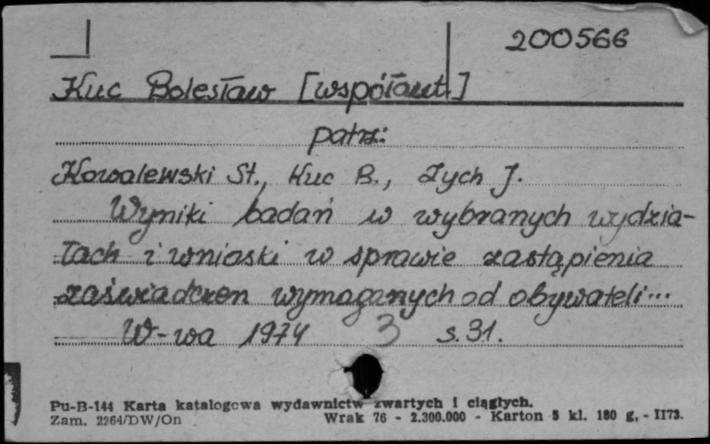 200566
Kuc Bolesław [współaut.]
patrz:
Kowalewski St., Kuc B., Zych J.
Wyniki badań w wybranych wydzia-
łach i wnioski w sprawie zastąpienia
zaświadczen wymaganych od obywateli...
W-wa 1974 3 s. 31.
Pu-B-144 Karta katalogowa wydawnictw zwartych i ciągłych.
Zam. 2264/DW/On Wrak 76 - 2.300.000 - Karton 5 kl. 180 g. - II73.